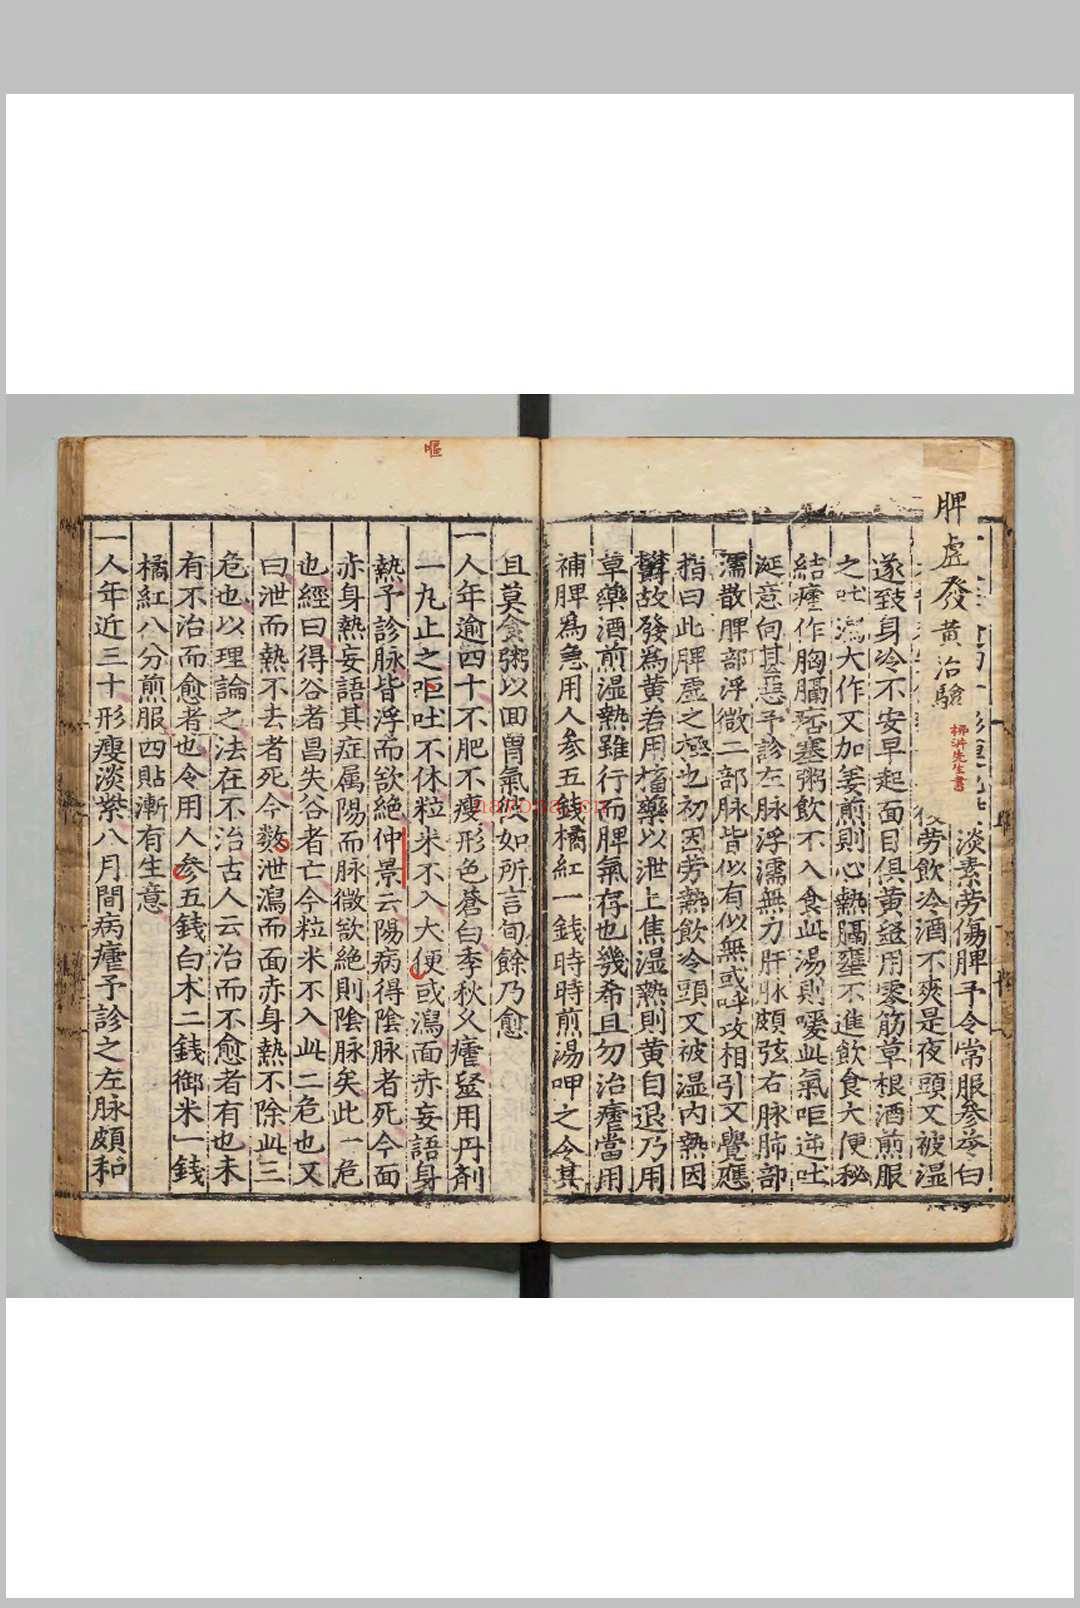 脾虛發黃治驗
淡素劳傷脾予令常服參苓白
劳飲冷酒不爽是夜頭又被湿
遂致身冷不安早起面目俱黄遂用零筋草根酒煎服
之吐瀉大作又加姜煎則心熱膈壅不進飲食大便秘
結瘧作胸膈痞塞粥飲不入食此湯則噯此氣咂逆吐
涎意向甚惡予診左脉浮濡無力肝脉頗弦右脉肺部
濡散脾部浮微二部脉皆似有似無或呼攻相引又覺應
指曰此脾虛之極也初因劳熱飲冷頭又被湿內熱因
欝故發爲黄若用搐藥以泄上焦湿熱則黄自退乃用
草藥酒煎湿熱雖行而脾氣存也幾希且勿治瘧當用
補脾爲急用人参五錢橘紅一錢時時煎湯呷之令其
且莫食粥以回胃氣彼如所言旬餘乃愈
一人年逾四十不肥不瘦形色蒼白季秋久瘧䀋用丹劑
一丸止之咂吐不休粒米不入大便或瀉面赤妄語身
熱予診脉皆浮而欲絶仲景云陽病得陰脉者死今面
赤身熱妄語其症属陽而脉微欲絶則陰脉矣此一危
也經曰得谷者昌失谷者亡今粒米不入此二危也又
曰泄而熱不去者死今数泄瀉而面赤身熱不除此三
危也以理論之法在不治古人云治而不愈者有也未
有不治而愈者也令用人参五錢白术二錢御米一錢
橘紅八分煎服四貼漸有生意
一人年近三十形瘦淡紫八月間病瘧予診之左脉頗和
嘔